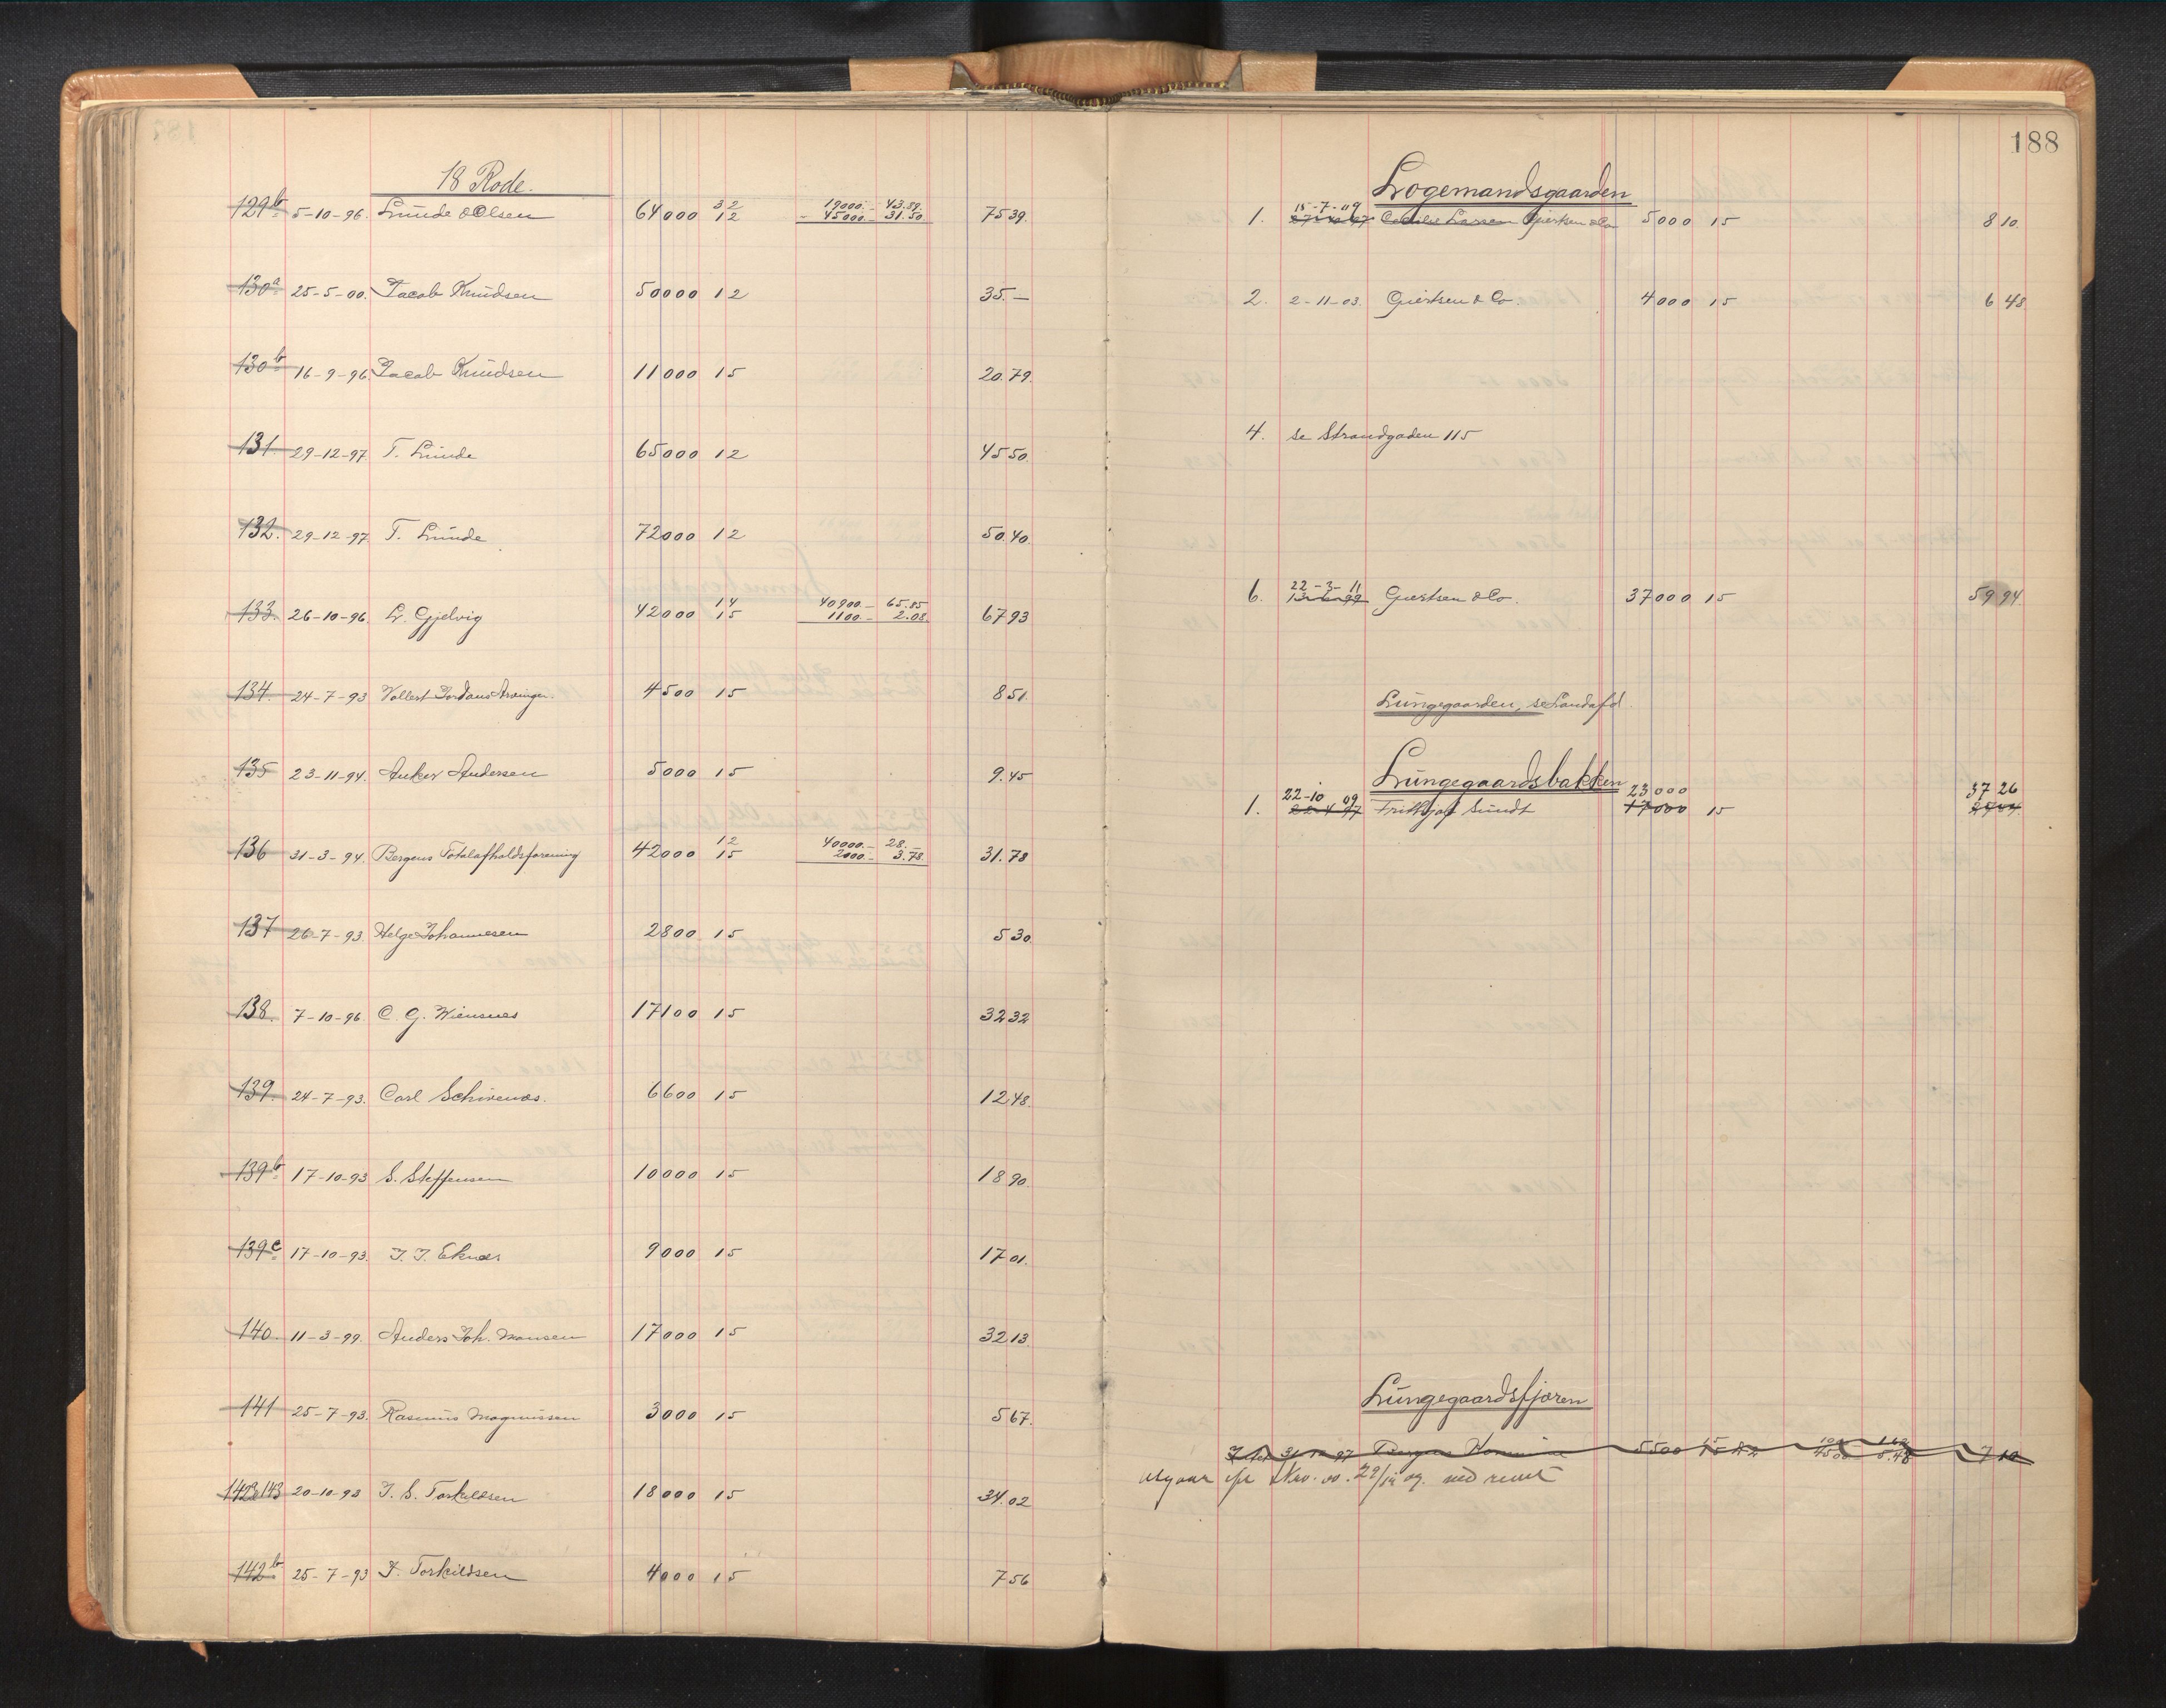 18 Rode.
129b 5-10-96. Lunde & Olsen 64000 32 12 19000.- 43.89. - 45000.- 31.50 75 39.
130a 25-5-00. Jacob Knudsen 50000 12 35.-
130b 16-9-96 Jacob Knudsen 11000 15 20.79.
131. 29-12-97. T. Lunde 65000 12 45 50
132. 29-12-97. T. Lunde 72000 12 50.40.
133. 26-10-96. L. Gjelvig 42000 14 15 40900.- 65.85 1100.- 2.08. 67 93
134. 24-7-93 Vollert Jordans Arvinger. 4500 15 8 51.
135 23-11-94. Anker Andersen 5000 15 9.45
136 31-3-94. Bergens Totalafholdsforening 42000 12 15 40000.- 28.- 2000.- 3.78. 31.78
137 26-7-93. Helge Johannesen 2800 15 5 30
138. 7-10-96 C. G. Wiensnes 17100 15 32 32
139. 24-7-93. Carl Schirenæs. 6600 15 12 48.
139b 17-10-93 S. Steffensen 10000 15 18 90.
139c 17-10-93. J. J. Eknæs 9000 15 17 01.
140. 11-3-99. Anders Joh. Monsen 17000 15 32 13.
141 25-7-93. Rasmus Magnussen 3000 15 5 67.
142a 143 20-10-93 J. S. Torkildsen 18000 15 34.02
142b 25-7-93 J. Torkildsen 4000 15 7 56
188
Logemandsgaarden
15-7-09
1. Larsen Gjertsen & Co 5000 15 8 10.
2. 2-11-03. Gjertsen & Co. 4000 15 6 48
4. se Strandgaden 115
22-3-11
6. Gjertsen & Co. 37000 15 59 94.
Lungegaarden, se Landafd.
Lungegaardsbakken
22-10 09 23000 37 26
1. 22-4-97 Frithjof Sundt 17000 15
Lungegaardsfjæren
31-12-97 Bergens Kommune 5500 15 12 4500 5.48 7 10
29/12 09.